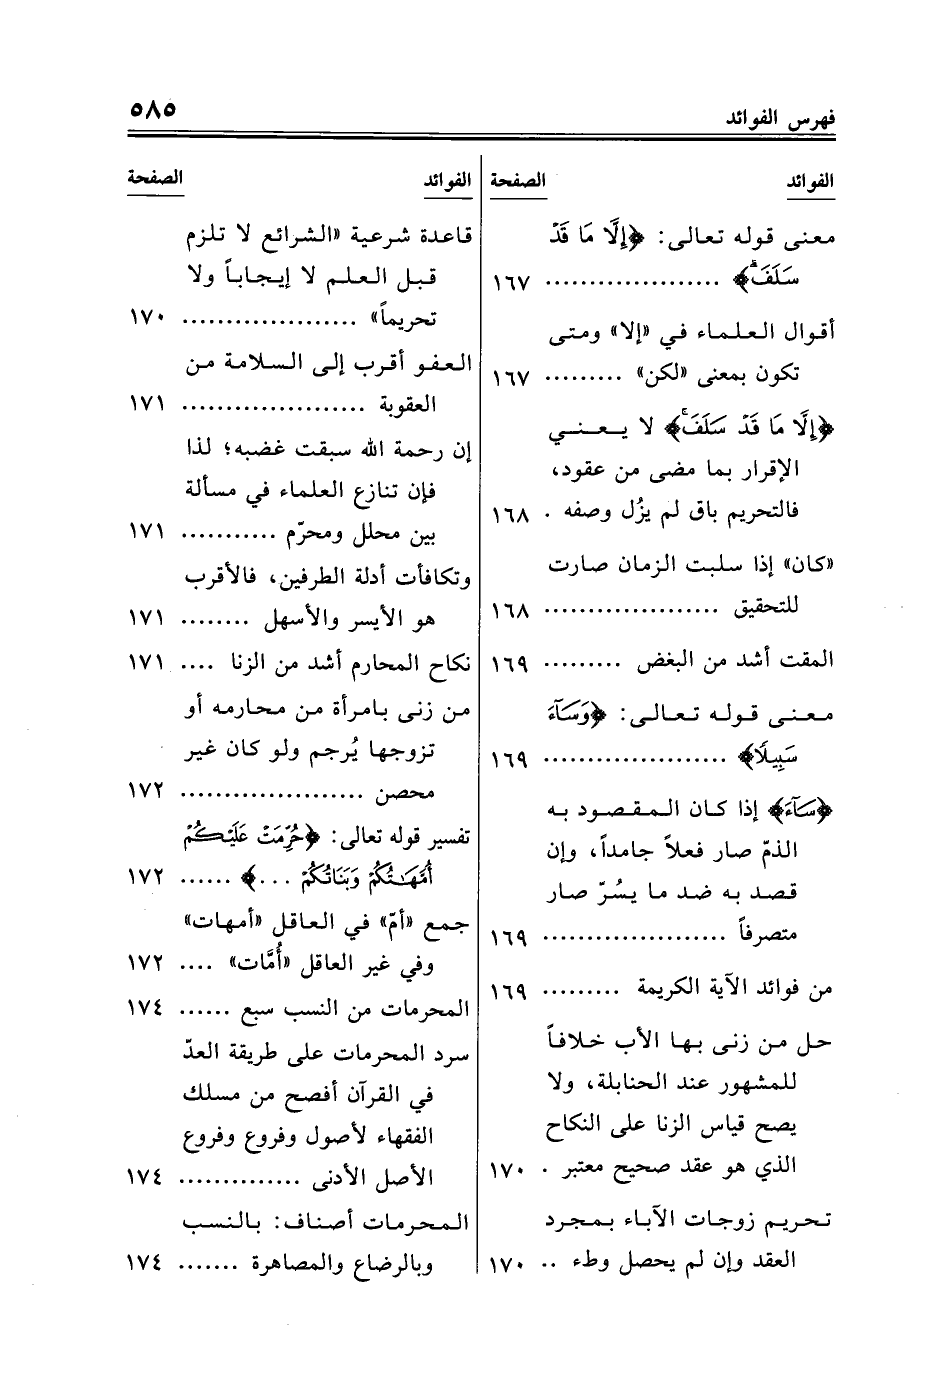 فهرس الفوائد ٥٨٥
الفوائد الصفحة
معنى قوله تعالى: ﴿إِلَّا مَا قَدْ
سَلَفَ﴾ .................... ١٦٧
أقوال العلماء في «إلا» ومتى
تكون بمعنى «لكن» ......... ١٦٧
﴿إِلَّا مَا قَدْ سَلَفَ﴾ لا يعني
الإقرار بما مضى من عقود،
فالتحريم باق لم يزُل وصفه . ١٦٨
«كان» إذا سلبت الزمان صارت
للتحقيق .................... ١٦٨
المقت أشد من البغض ......... ١٦٩
معنى قوله تعالى: ﴿وَسَآءَ
سَبِيلًا﴾ ..................... ١٦٩
﴿سَآءَ﴾ إذا كان المقصود به
الذمّ صار فعلاً جامداً، وإن
قصد به ضد ما يسُرّ صار
متصرفاً ..................... ١٦٩
من فوائد الآية الكريمة ......... ١٦٩
حل من زنى بها الأب خلافاً
للمشهور عند الحنابلة، ولا
يصح قياس الزنا على النكاح
الذي هو عقد صحيح معتبر . ١٧٠
تحريم زوجات الآباء بمجرد
العقد وإن لم يحصل وطء .. ١٧٠
الفوائد الصفحة
قاعدة شرعية «الشرائع لا تلزم
قبل العلم لا إيجاباً ولا
تحريماً» .................... ١٧٠
العفو أقرب إلى السلامة من
العقوبة ..................... ١٧١
إن رحمة الله سبقت غضبه؛ لذا
فإن تنازع العلماء في مسألة
بين محلل ومحرّم ........... ١٧١
وتكافأت أدلة الطرفين، فالأقرب
هو الأيسر والأسهل ........ ١٧١
نكاح المحارم أشد من الزنا .... ١٧١
من زنى بامرأة من محارمه أو
تزوجها يُرجم ولو كان غير
محصن ..................... ١٧٢
تفسير قوله تعالى: ﴿حُرِّمَتْ عَلَيْكُمْ
أُمَّهَٰتُكُمْ وَبَنَاتُكُمْ ...﴾ ...... ١٧٢
جمع «أمّ» في العاقل «أمهات»
وفي غير العاقل «أُمَّات» .... ١٧٢
المحرمات من النسب سبع ...... ١٧٤
سرد المحرمات على طريقة العدّ
في القرآن أفصح من مسلك
الفقهاء لأصول وفروع وفروع
الأصل الأدنى .............. ١٧٤
المحرمات أصناف: بالنسب
وبالرضاع والمصاهرة ....... ١٧٤